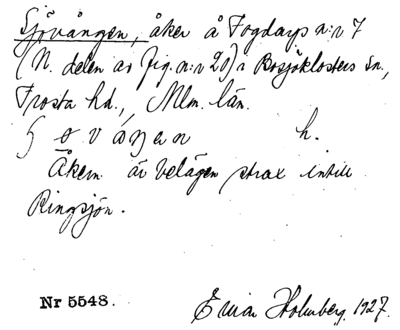 Sjövången, åker å Fogdarps n:r 7
(N. delen av fig. n:r 20) i Bosjöklosters sn.,
Frosta hd., Mlm. län.
h.
Åkern är belägen strax intill
Ringsjön.
Nr 5548. Holmberg. 1927.